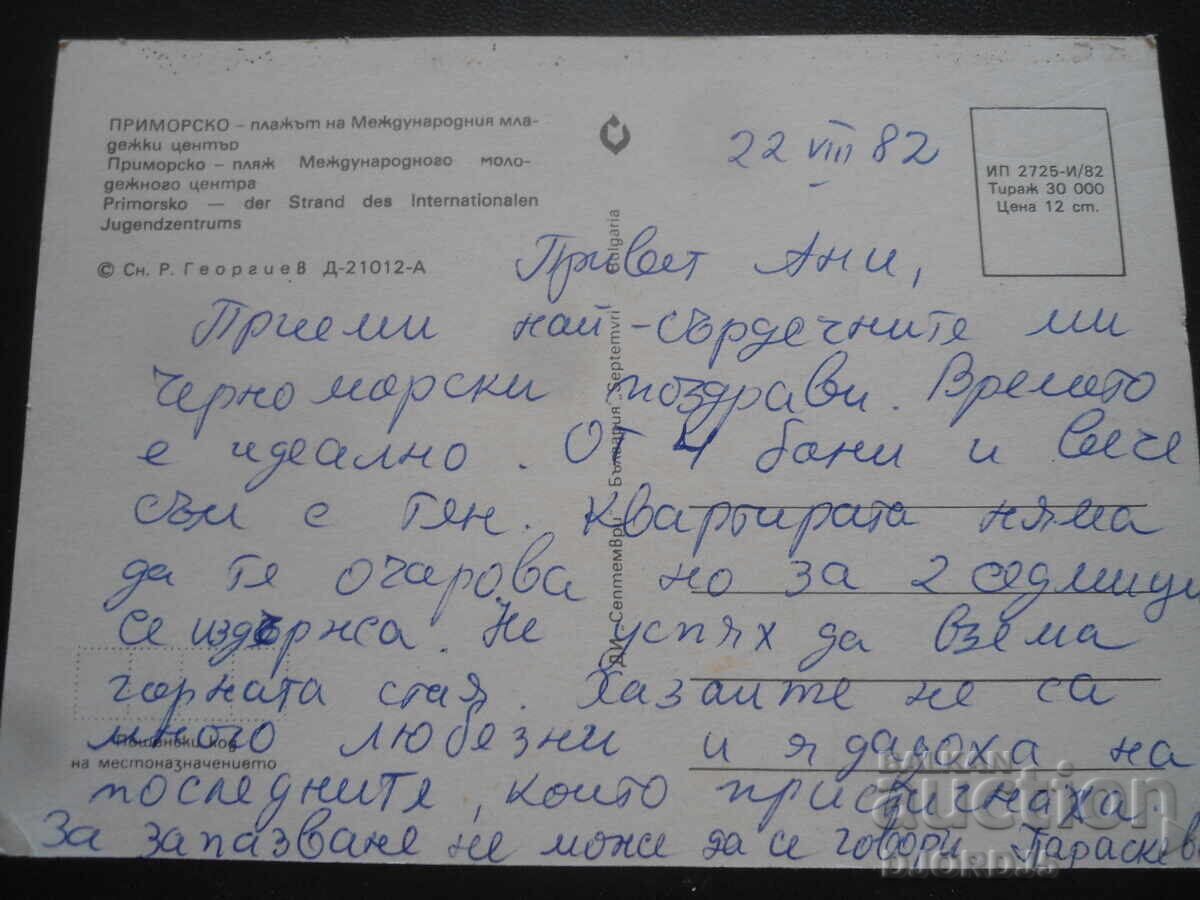 ПРИМОРСКО – плажът на Международния мла-
дежки център
Приморско – пляж Международного моло-
дежного центра
Primorsko — der Strand des Internationalen
Jugendzentrums
© Сн. Р. Георгиев Д-21012-А
22 VIII 82
ИП 2725-И/82
Тираж 30 000
Цена 12 ст.
ДИ „Септември" България „Septemvri" Bulgaria
Привет Ани,
Приеми най-сърдечните ми
черноморски поздрави. Времето
е идеално. От 4 бани и вече
съм с тен. Квартирата няма
да те очарова но за 2 седмици
се издържа. Не успях да взема
горната стая. Хазаите не са
много любезни и я дадоха на
последните, които пристигнаха.
За запазване не може да се говори Параскева
Пощенски код
на местоназначението
BALKAN
auction
DJORDJ5